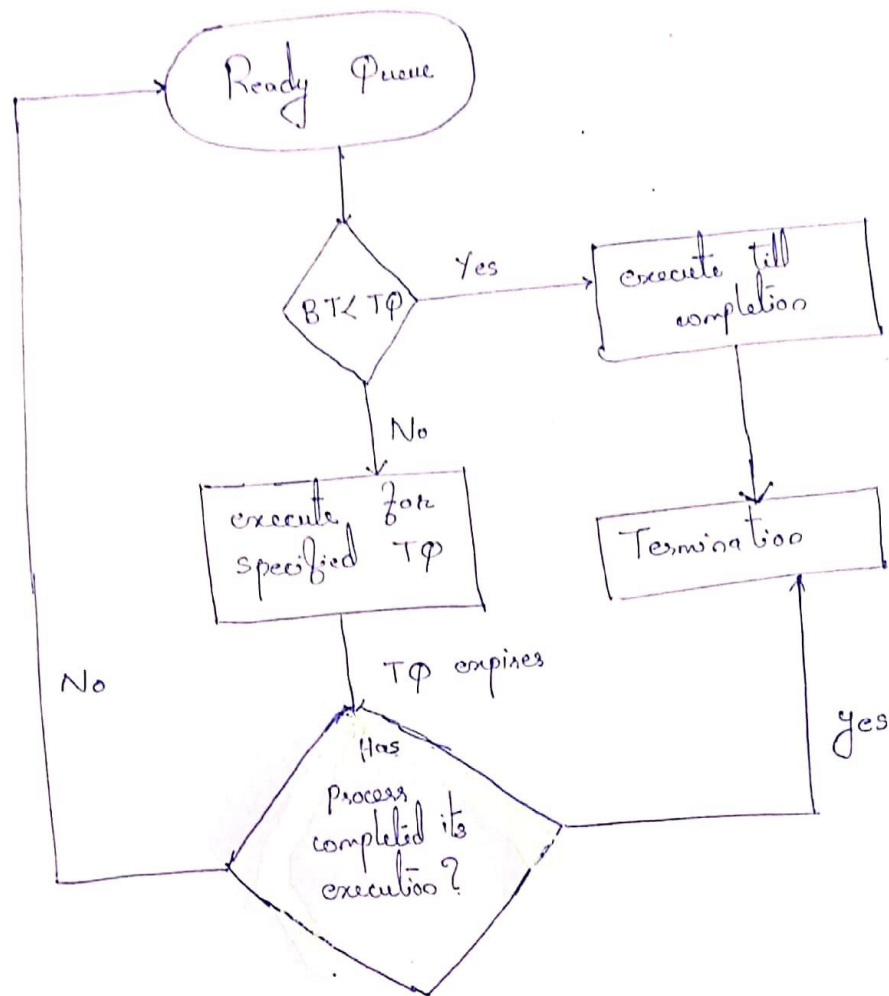 Ready Queue
BT< TQ
Yes
execute till
completion
No
execute for
specified TQ
Termination
TQ expires
No
yes
Has
process
completed its
execution?